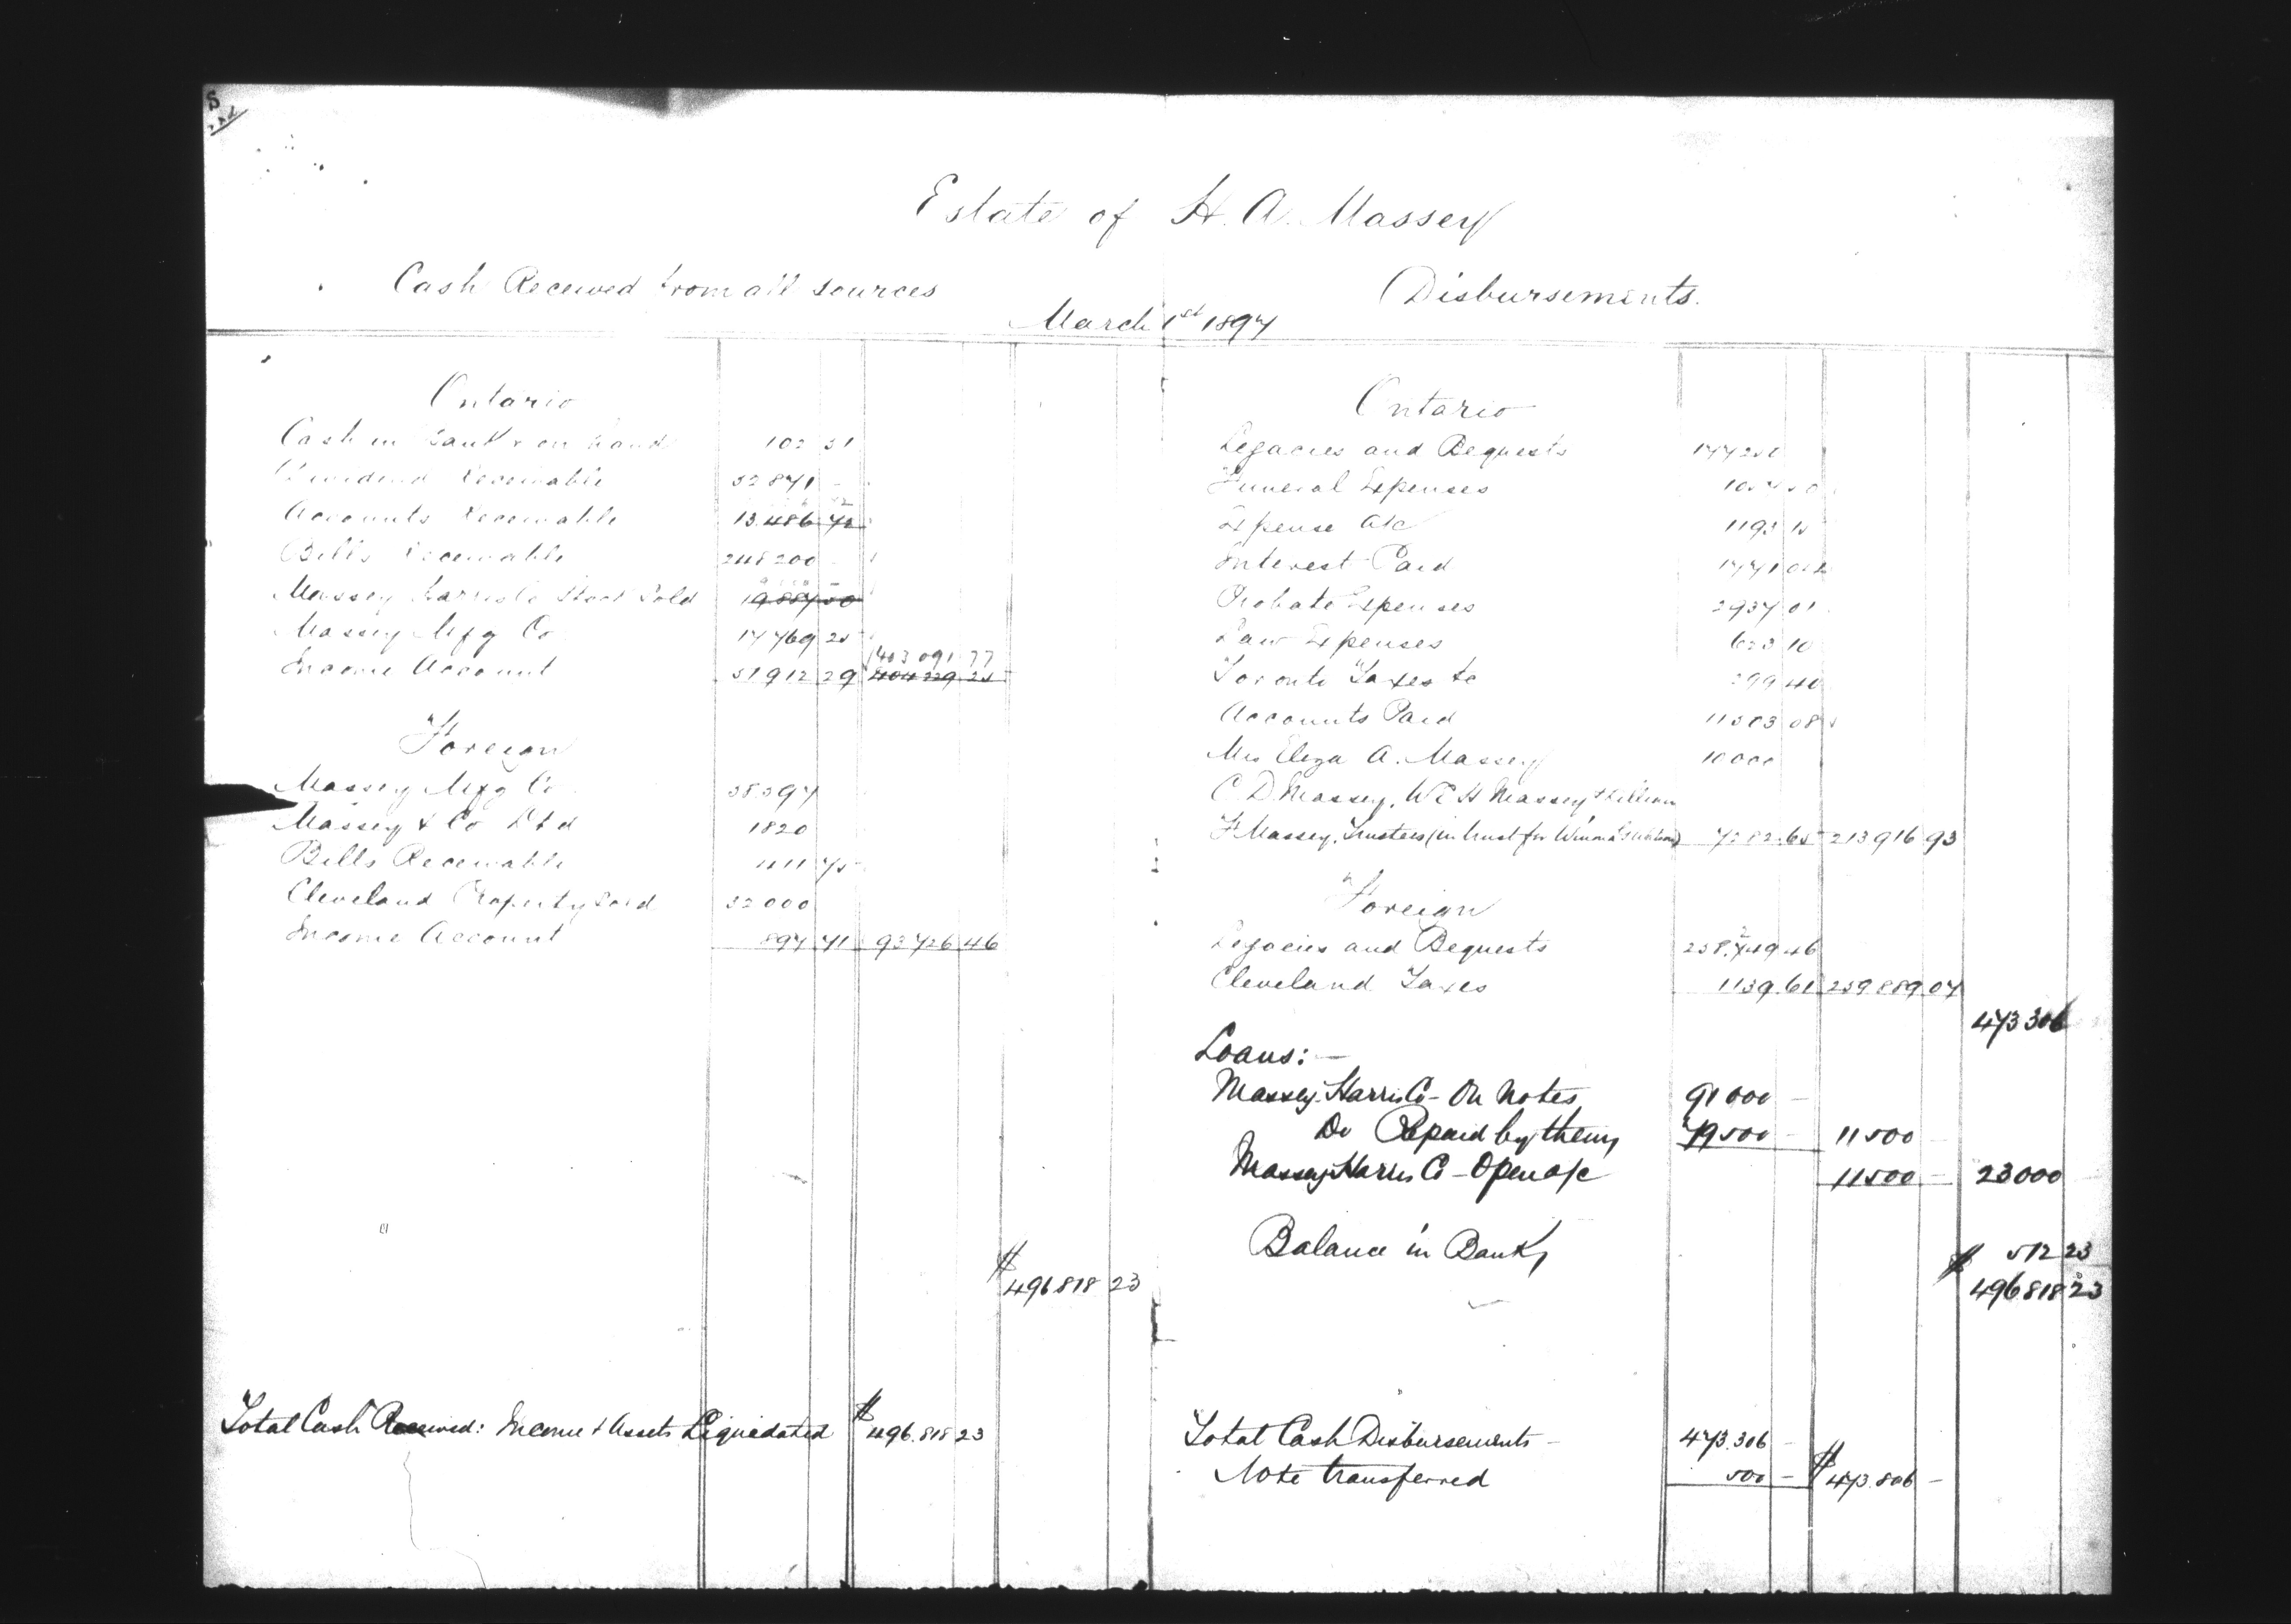 Estate of H. A. Massey
Cash Received from all sources
March 1st 1897
Ontario
Cash in Bank & on hand 102 51
Dividend Receivable 32871 -
Accounts Receivable 13486 72
Bills Receivable 248200 -
Massey Harris Co Stock Sold 19887 50
Massey Mfg Co 17769 25
403 091 77
Income Account 51912 29 404229 25
Foreign
Massey Mfg Co 58597
Massey & Co Ltd 1820
Bills Receivable 411 75
Cleveland Property Sold 32000
Income Account 897 71 93726 46
$
496818 23
Total Cash Received: Income & Assets Liquidated $ 496.818 23
Disbursements.
Ontario
Legacies and Bequests 177250
Funeral Expenses
Expense a/c 1193 15
Interest Paid 1771
Probate Expenses 2937 01
Law Expenses 623 10
Toronto Taxes &c 299 40
Accounts Paid 11503 08
Mrs Eliza A. Massey 10000
C. D. Massey, W E H Massey & Lillian
F Massey, Trustees (in trust for 7282.65 213916 93
Foreign
Legacies and Bequests 258.749 46
Cleveland Taxes 1139.61 259889.07
473306
Loans: —
Massey-Harris Co - On Notes 91000 -
Do Repaid by them 79500 - 11500 -
Massey Harris Co - Open a/c 11500 - 23000
Balance in Bank 512 23
$ 496818 23
Total Cash Disbursements - 473.306 -
Note transferred 500 - $473.806 -